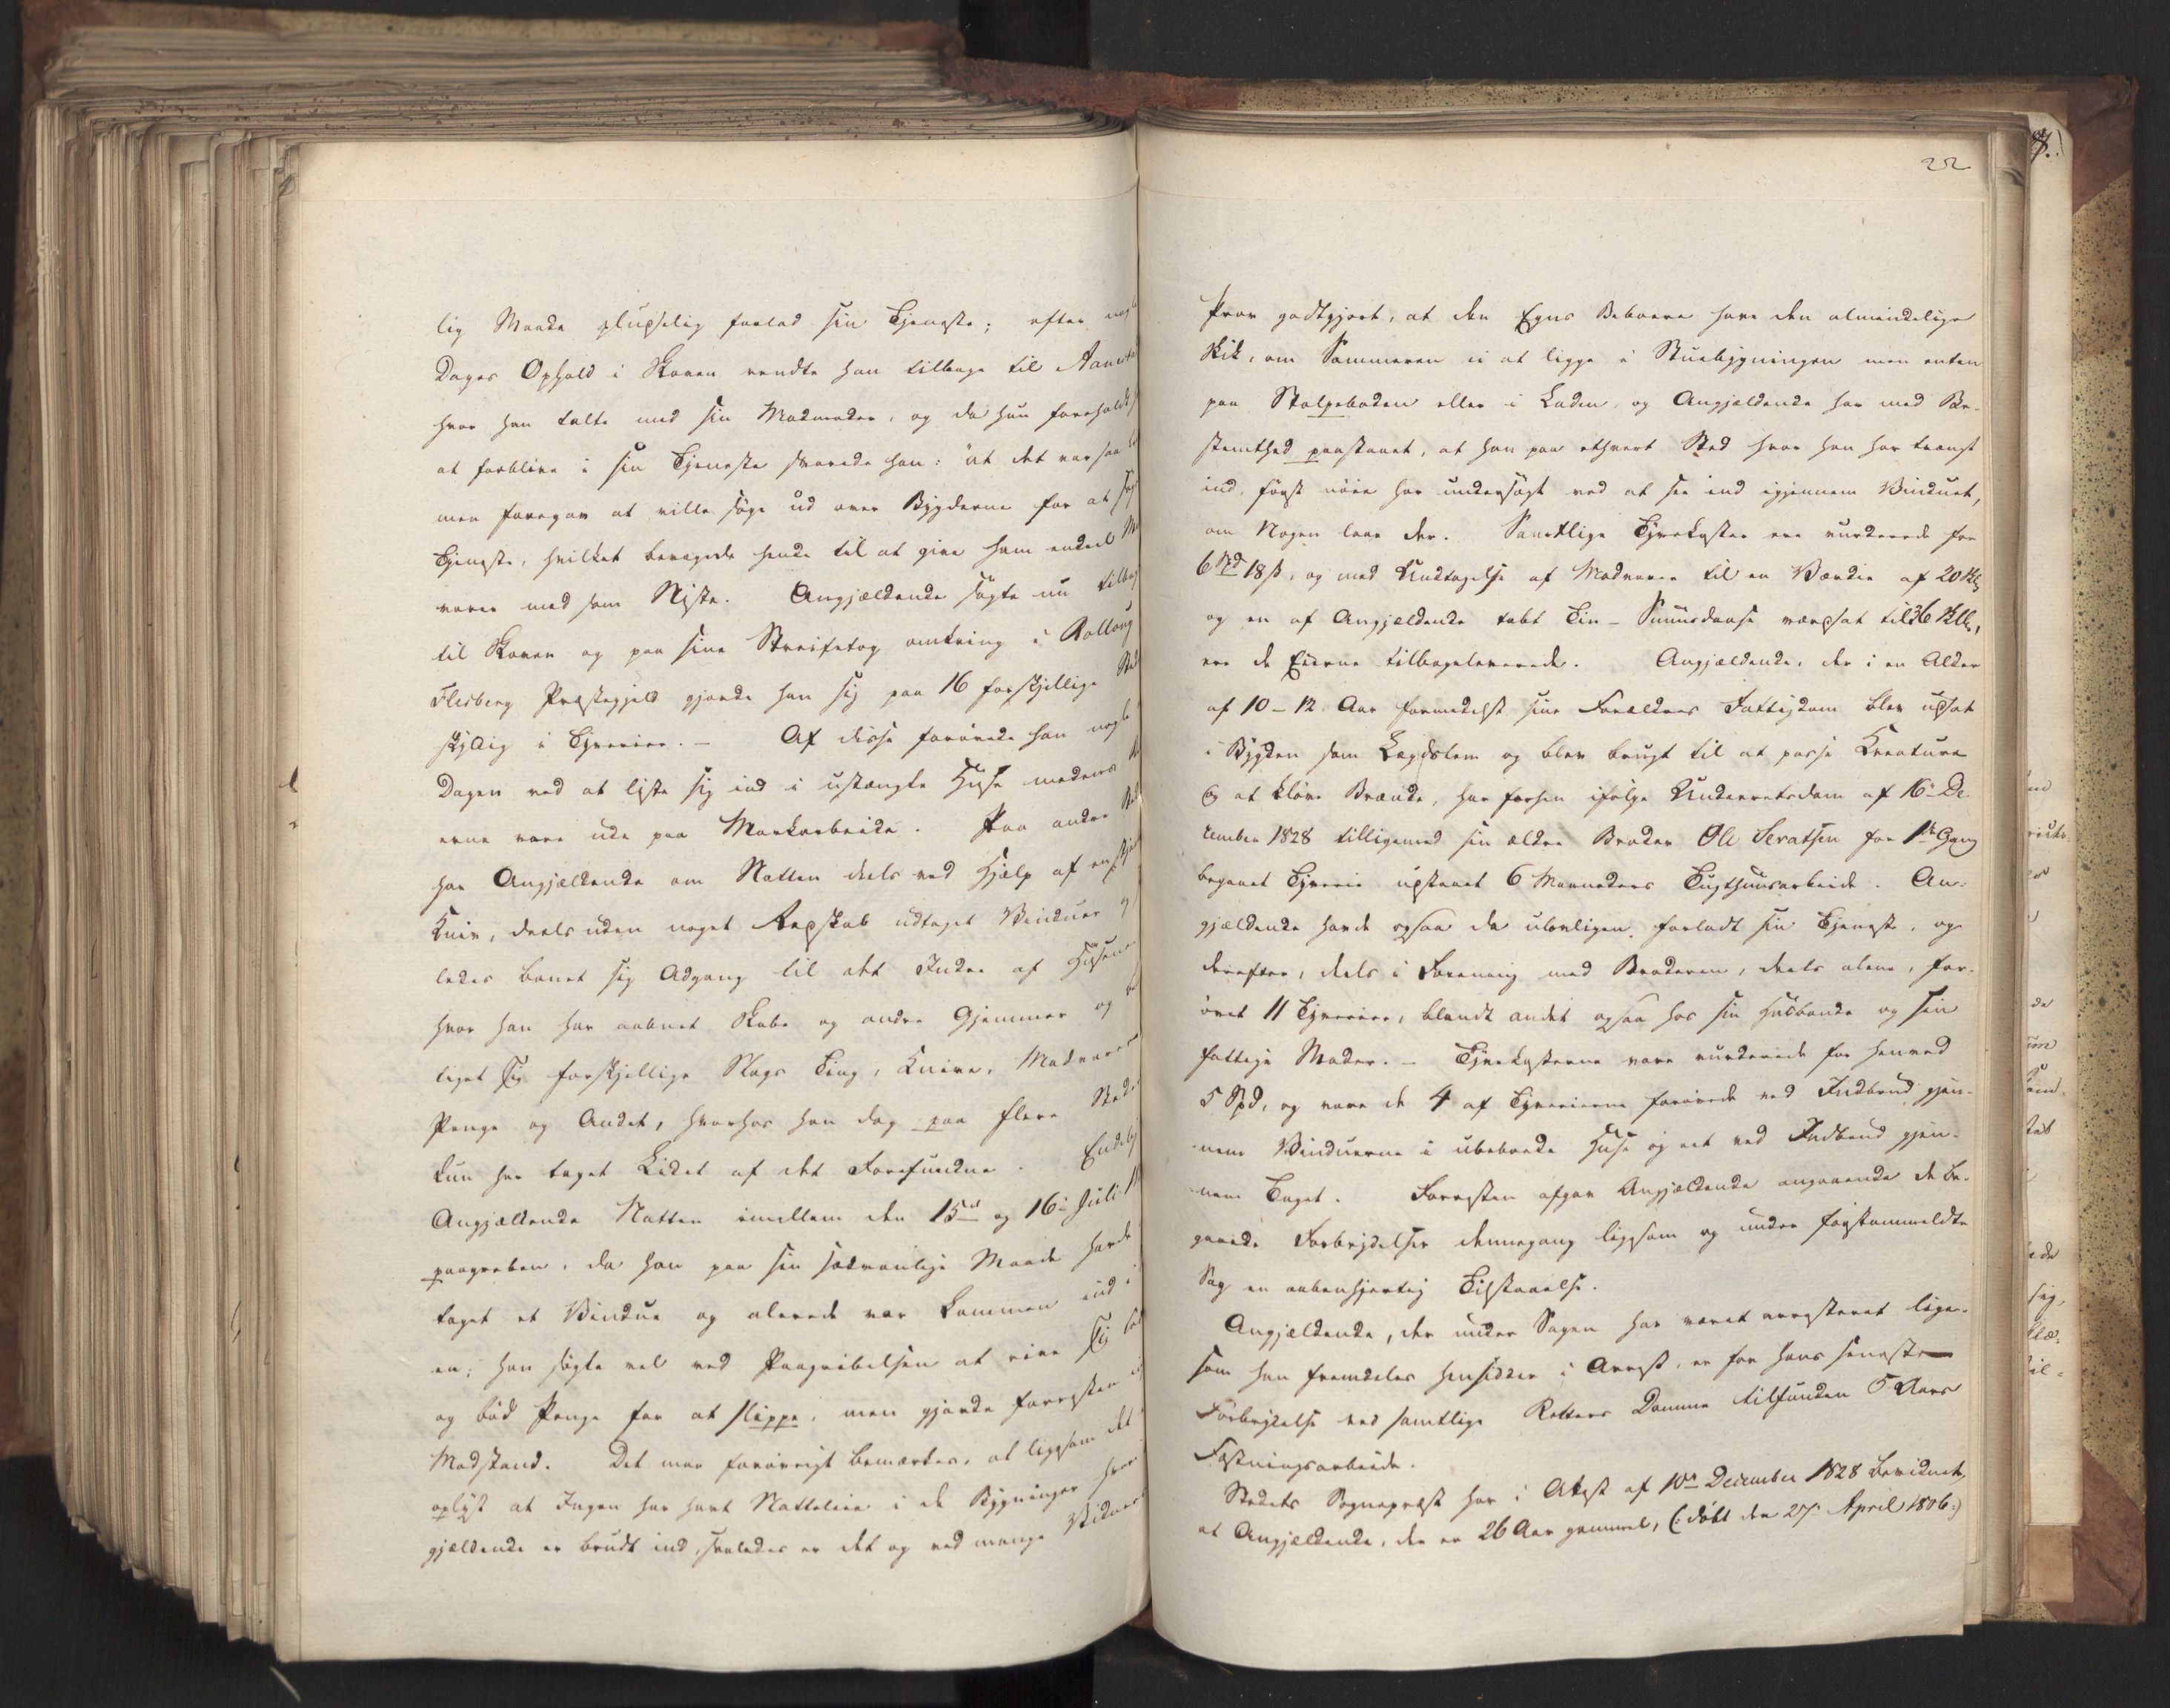 lig Maade pludselig forlod sin Tjeneste; efter
Dages Ophold i Skoven vendte han tilbage til
hvor han talte med sin Madmoder, og da hun foreholdt
at forblive i sin Tjeneste svarede han: "at det var saa
men foregav at ville søge ud over Bygderne for at
Tjeneste, hvilket bevægede hende til at give ham endeel
varer med som Niste. Angjældende søgte nu
til Skoven og paa sine Streifetog omkring i Rollaug
Flesberg Præstegjeld gjorde han sig paa 16 forskjellige
skyldig i Tyverier. – Af disse forøvede han
Dagen ved at liste sig ind i ustængte Huse medens
erne vare ude paa Markarbeide. Paa andre
har Angjældende om Natten deels ved Hjælp af en
Kniv, deels uden noget Redskab udtaget Vinduer
ledes banet sig Adgang til det Indre af Husene
hvor han har aabnet Skabe og andre Gjemmer og
liget sig forskjellige Slags Ting, Knive, Madvarer
Penge og Andet, hvorhos han dog paa flere
kun har taget Lidet af det Forefundne.
Angjældende Natten imellem den 15de og 16de Juli
paagreben, da han paa sin sædvanlige Maade havde
taget et Vindue og allerede var kommen ind i
en; han søgte vel ved Paagribelsen at rive sig
og bød Penge for at slippe, men gjorde forresten
Modstand. Det maa forøvrigt bemærkes, at ligesom det
oplyst at Ingen har havt Natteleie i de Bygninger hvor
gjældende er brudt ind, saaledes er det og ved mange
22
Prov godtgjort, at den Egns Beboere have den almindelige
Skik, om Sommeren ei at ligge i Stuebygningen men enten
paa Stolpeboden eller i Laden, og Angjældende har med Be-
stemthed paastaaet, at han paa ethvert Sted hvor han har trængt
ind, først nøie har undersøgt ved at see ind igjennem Vinduet,
om Nogen laae der. Samtlige Tyvekoster ere vurderede for
6 Spd 18 ß, og med Undtagelse af Madvarer til en Værdie af 20
og en af Angjældende tabt Tin-Snuusdaase værdsat til 36
ere de Eierne tilbageleverede. Angjældende, der i en Alder
af 10–12 Aar formedelst sine Forældres Fattigdom blev udsat
i Bygden som Lægdslem og blev brugt til at passe Kreature
og at kløve Brænde, har forhen ifølge Underretsdom af 16de De-
cember 1828 tilligemed sin ældre Broder Ole for 1ste Gang
begaaet Tyverie udstaaet 6 Maaneders Tugthuusarbeide. An-
gjældende havde ogsaa da ulovligen forladt sin Tjeneste, og
derefter, deels i Forening med Broderen, deels alene, for-
øvet 11 Tyverier, blandt andet ogsaa hos sin Husbonde og sin
fattige Moder. – Tyvekosterne vare vurderede for henved
5 Spd, og vare de 4 af Tyverierne forøvede ved Indbrud gjen-
nem Vinduerne i ubeboede Huse og eet ved Indbrud gjen-
nem Taget. Forresten afgav Angjældende angaaende de be-
gaaede Forbrydelser dennegang ligesom og under førstommeldte
Sag en aabenhjertig Tilstaaelse.
Angjældende, der under Sagen har været arresteret lige-
som han fremdeles hensidder i Arrest, er for hans seneste
Forbrydelse ved samtlige Retters Domme tilfunden 5 Aars
Fæstningsarbeide.
Stedets Sognepræst har i Attest af 10de December 1828 bevidnet,
at Angjældende, der er 26 Aar gammel, (: døbt den 27 April 1806:)